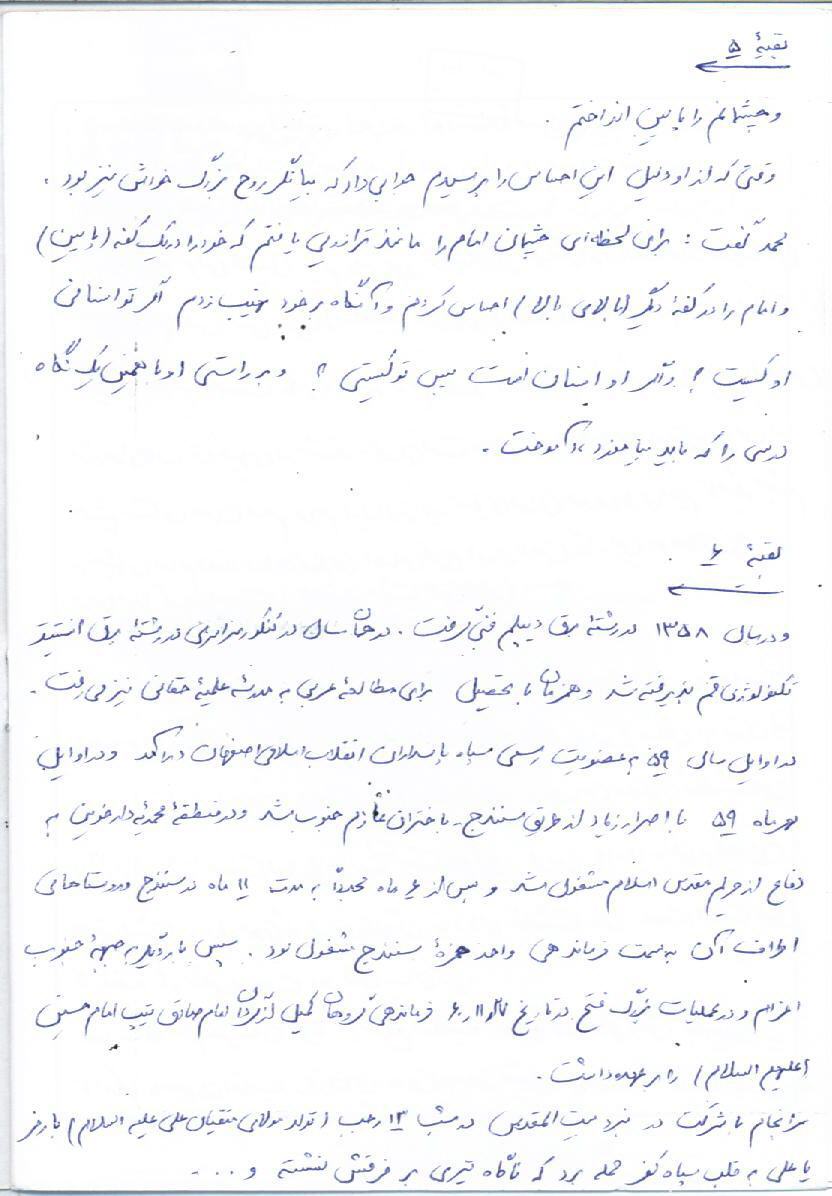 بقیهٔ ۵
و چشمانم را پایین انداختم .
وقتی که از او دلیل این احساس را پرسیدم جوابی داد که بیانگر روح بزرگ خودش نیز بود .
محمد گفت : برای لحظه‌ای چشمان امام را مانند ترازویی یافتم که خود را در یک کفه (پایین)
و امام را در کفهٔ دیگر (بالای بالا) احساس کردم و آنگاه بر خود نهیب زدم اگر تو انسانی
او کیست ؟ و اگر او انسان است پس تو کیستی ؟ و براستی او با همین یک نگاه
درسی را که باید بیاموزد ، آموخت .
بقیهٔ ۶
و در سال ۱۳۵۸ در رشتهٔ برق دیپلم فنی گرفت . در همان سال در کنکور سراسری در رشتهٔ برق انستیتو
تکنولوژی قم پذیرفته شد و همزمان با تحصیل برای مطالعهٔ عربی به مدرسهٔ علمیهٔ حقانی نیز می‌رفت .
در اوایل سال ۵۹ به عضویت رسمی سپاه پاسداران انقلاب اسلامی اصفهان درآمد و در اوایل
مهرماه ۵۹ با اصرار زیاد از طریق سنندج - باختران عازم جنوب شد و در منطقهٔ محمدیه دارخوین به
دفاع از حریم مقدس اسلام مشغول شد و پس از ۶ ماه مجدداً به مدت ۱۱ ماه در سنندج و روستاهای
اطراف آن به سمت فرماندهی واحد حمزهٔ سنندج مشغول بود . سپس بار دیگر به جبههٔ جنوب
اعزام و در عملیات بزرگ فتح در تاریخ فرماندهی گروهان کمیل از گردان امام صادق تیپ امام حسین
(علیهم السلام) را بر عهده داشت .
سرانجام با شرکت در نبرد بیت المقدس در شب ۱۳ رجب (تولد مولای متقیان علی علیه السلام) با رمز
یا علی به قلب سپاه کفر حمله برد که ناگاه تیری بر فرقش نشسته و ....